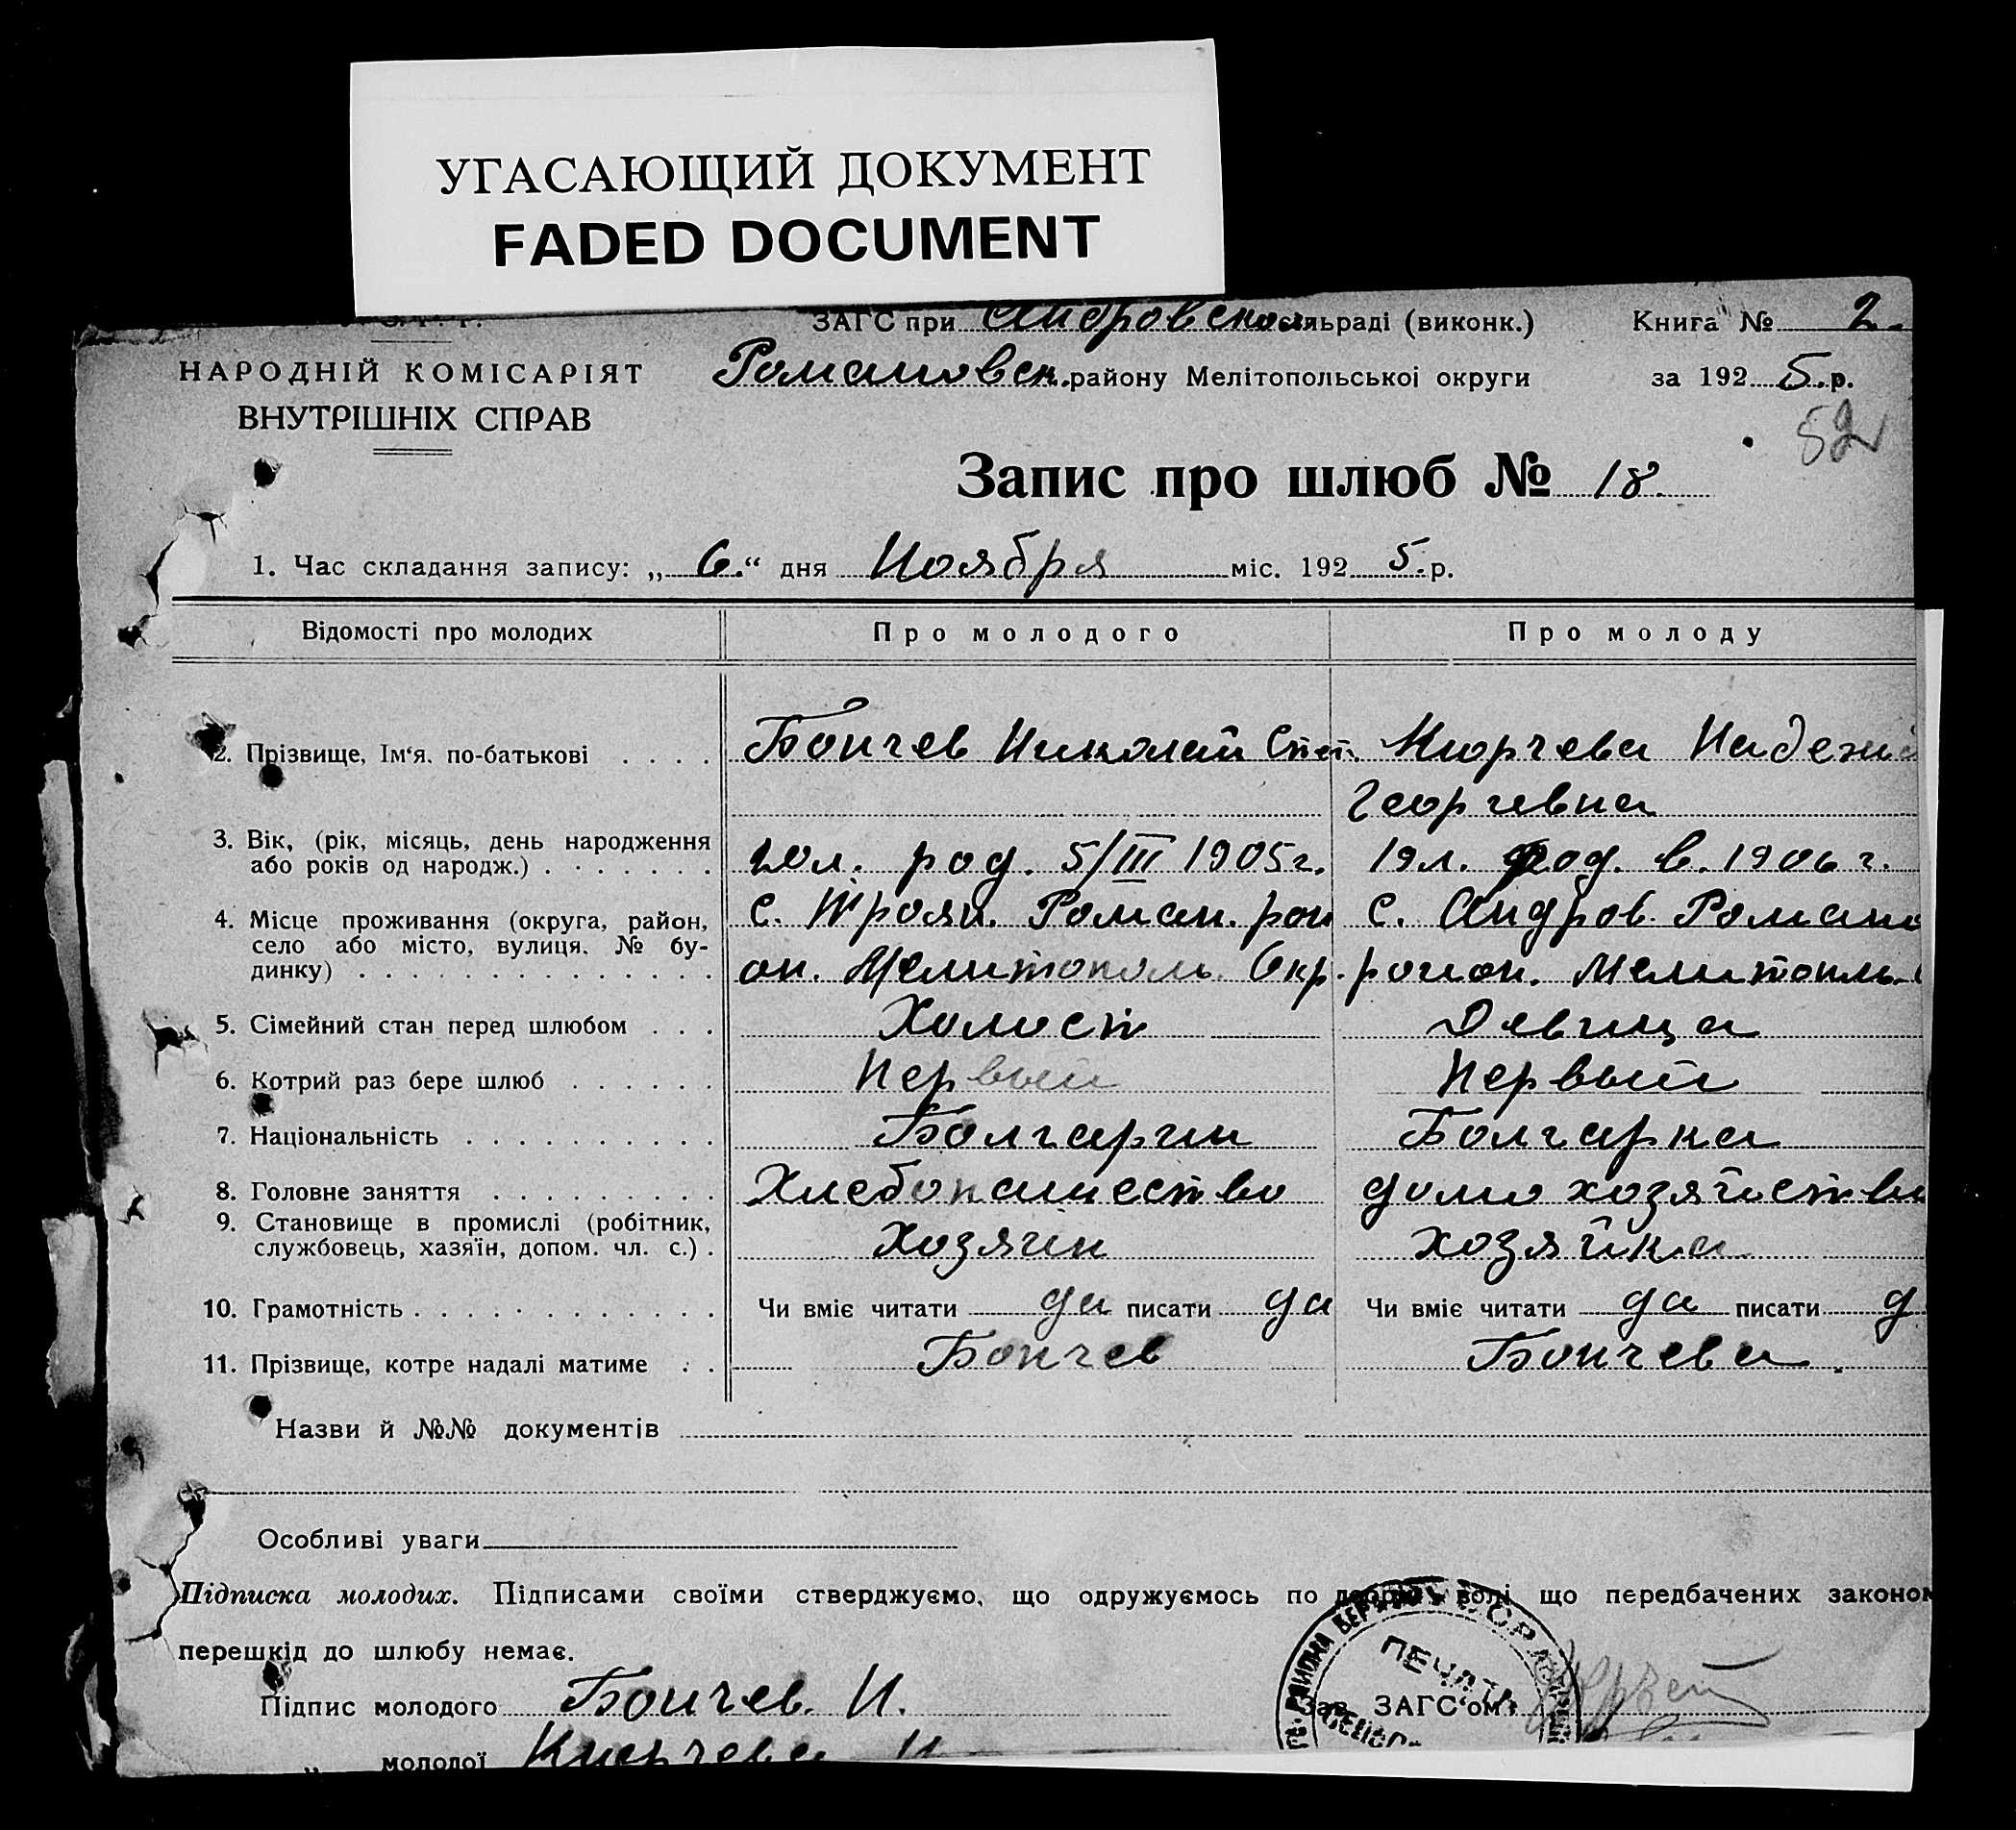 УГАСАЮЩИЙ ДОКУМЕНТ
FADED DOCUMENT
ЗАГС при Андровском сільраді (виконк.) Книга № 2.
НАРОДНІЙ КОМІСАРІЯТ Романовск. району Мелітопольської округи за 1925 р.
ВНУТРІШНІХ СПРАВ
52
Запис про шлюб № 18.
1. Час складання запису: „6.“ дня Ноября міс. 1925.р.
Відомості про молодих Про молодого Про молоду
2. Прізвище, Ім‘я. по-батькові . . . . Бончев Николай Степ. Кюрчева Надежд
Георгевна
3. Вік, (рік, місяць, день народження
або років од народж.) . . . . . . . 20 л. род. 5/III 1905 г. 19 л. род. в. 1906 г.
4. Місце проживання (округа, район, с. Троян. Роман. рай с. Андров. Романо
село або місто, вулиця. № бу-
динку) . . . . . . . . . . . . . . . он. Мелитополь. Окр. район. Мелитополь.
5. Сімейний стан перед шлюбом . . . Холост Девица
6. Котрий раз бере шлюб . . . . . . Первый Первый
7. Національність . . . . . . . . . . Болгарин Болгарка
8. Головне заняття . . . . . . . . . Хлебопашество домохозяйство
9. Становище в промислі (робітник,
службовець, хазяїн, допом. чл. с.) . Хозяин хозяйка
10. Грамотність . . . . . . . . . . . . Чи вміє читати да писати да Чи вміє читати да писати д
11. Прізвище, котре надалі матиме . . Бончев Бончева.
Назви й №№ документів
Особливі уваги
Підписка молодих. Підписами своїми стверджуємо, що одружуємось по добрій волі що передбачених законом
перешкід до шлюбу немає.
ПЕЧАТЬ
Підпис молодого Бончев. Н. Зав. ЗАГС‘ом
„ молодої Кюрчева Н